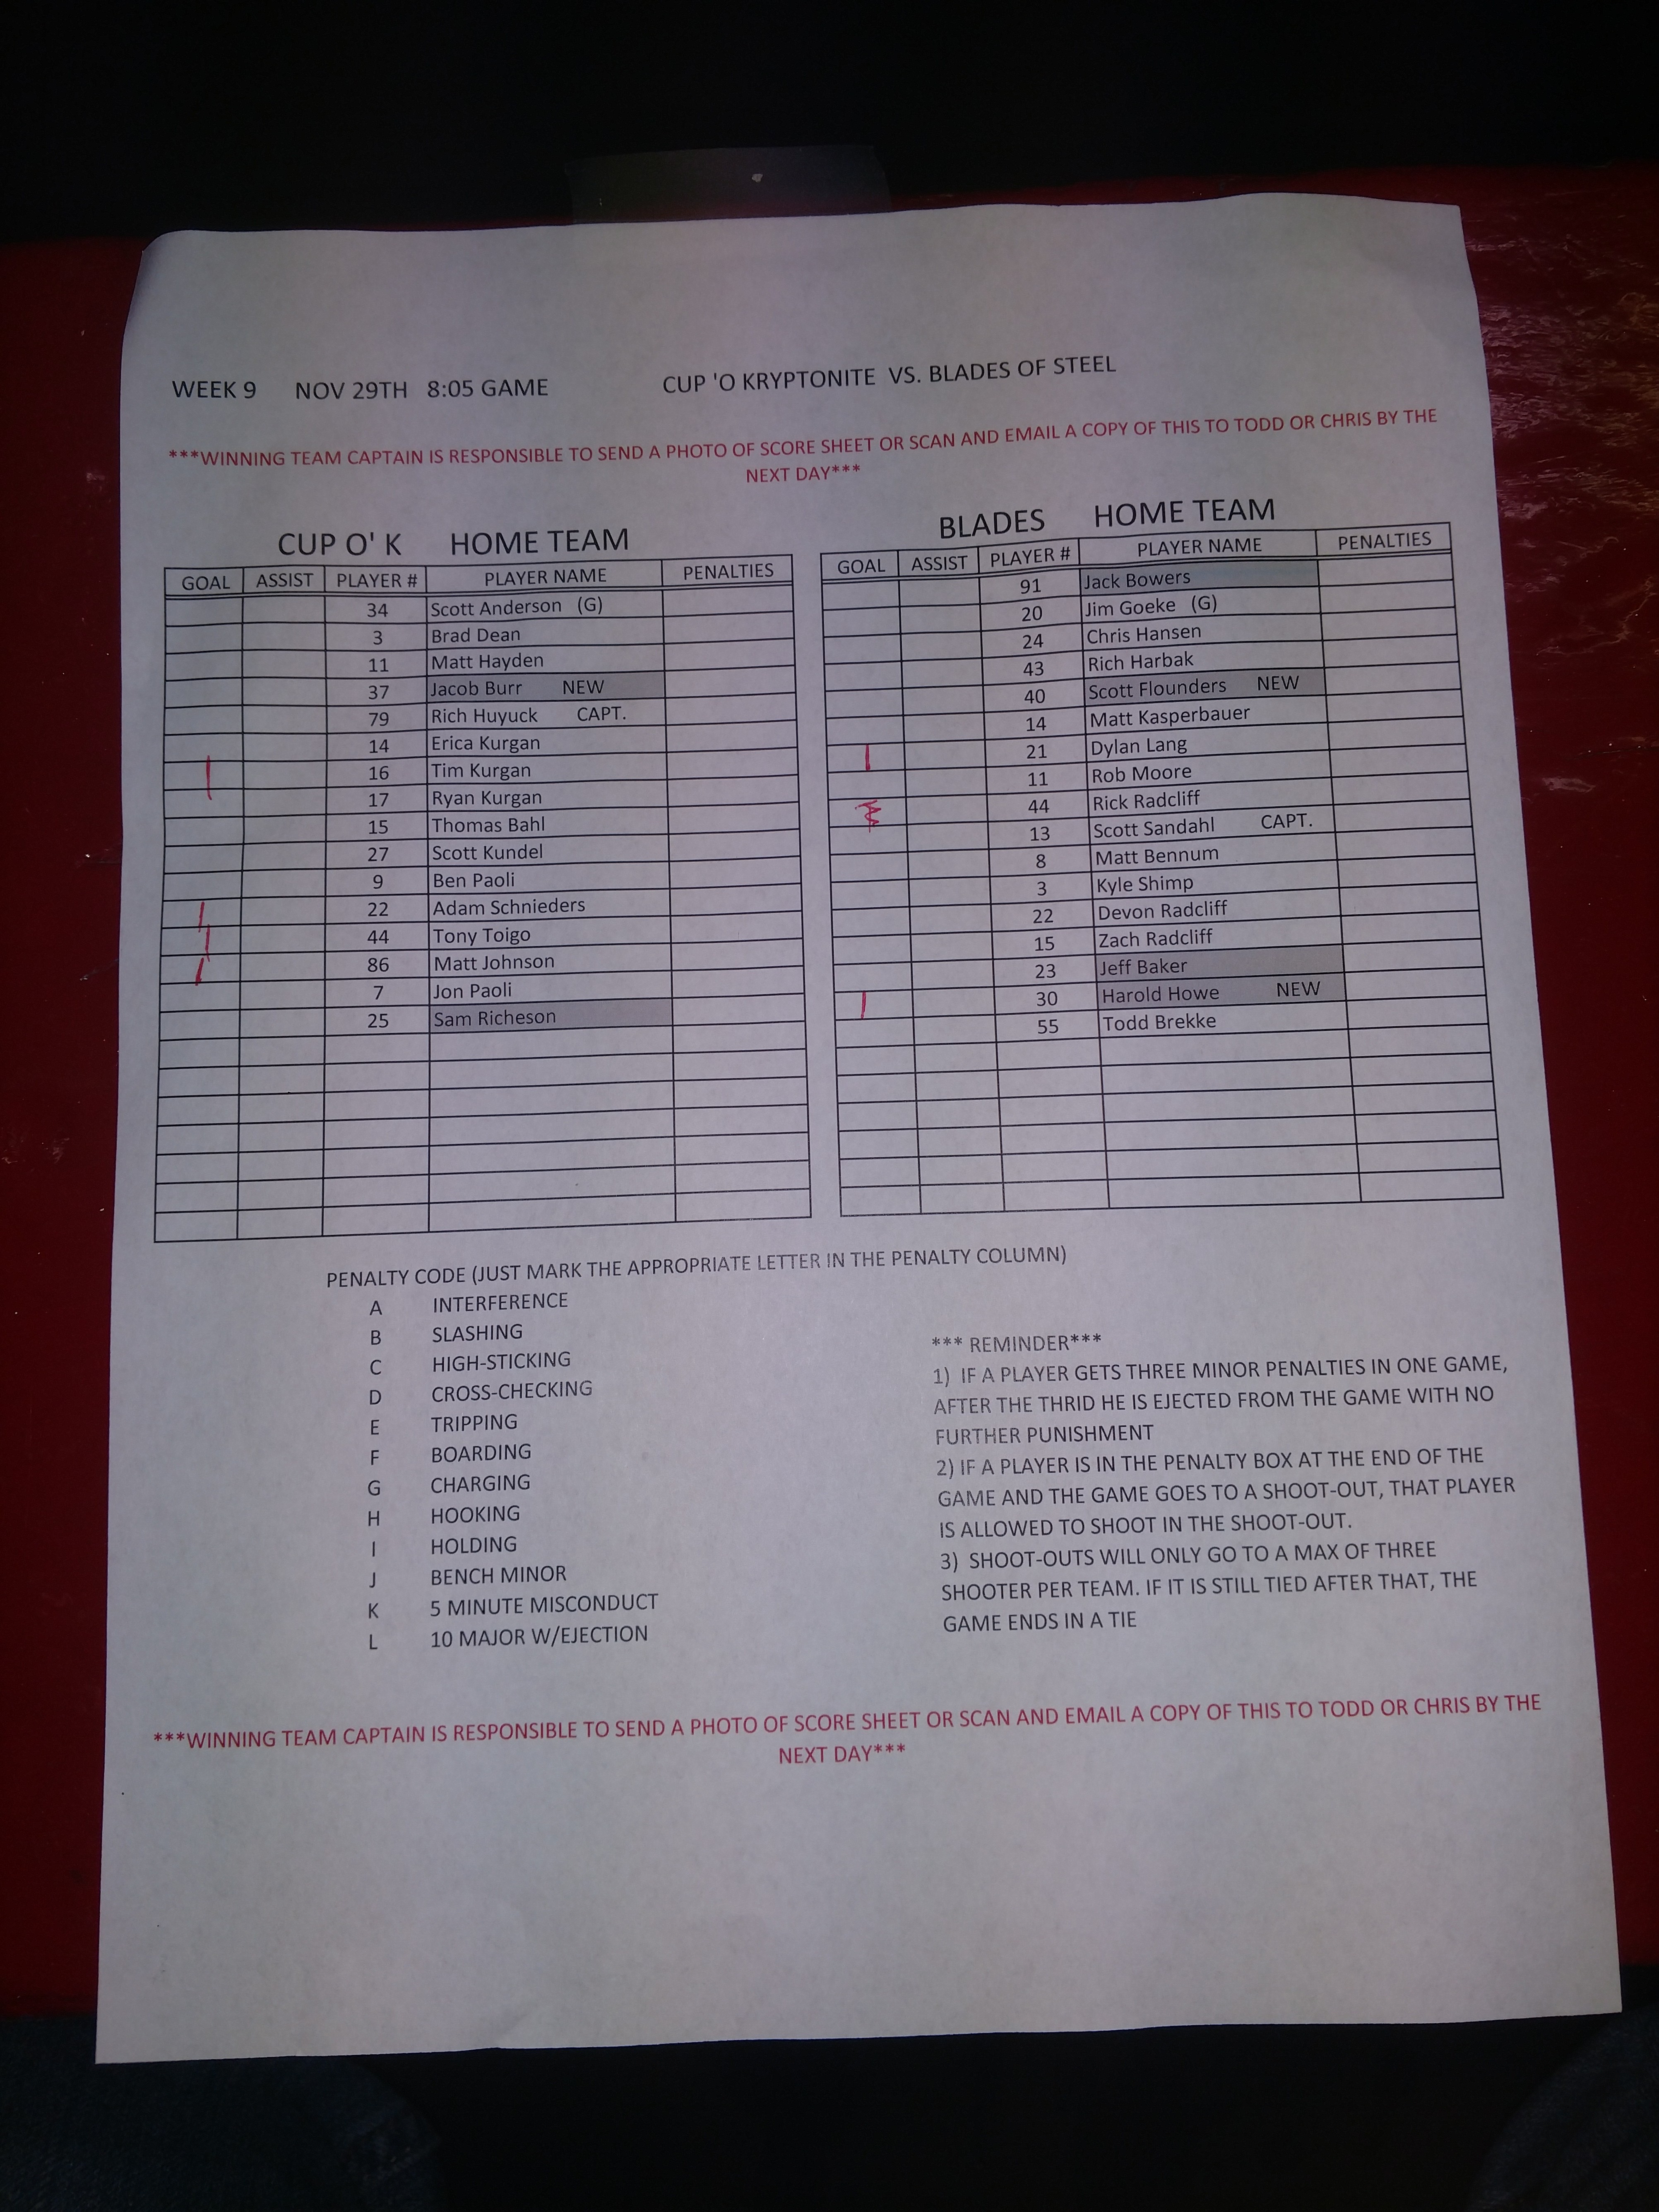 WEEK 9 NOV 29TH 8:05 GAME CUP 'O KRYPTONITE VS. BLADES OF STEEL
***WINNING TEAM CAPTAIN IS RESPONSIBLE TO SEND A PHOTO OF SCORE SHEET OR SCAN AND EMAIL A COPY OF THIS TO TODD OR CHRIS BY THE
NEXT DAY***
CUP O' K HOME TEAM
GOAL ASSIST PLAYER # PLAYER NAME PENALTIES
34 Scott Anderson (G)
3 Brad Dean
11 Matt Hayden
37 Jacob Burr NEW
79 Rich Huyuck CAPT.
14 Erica Kurgan
| 16 Tim Kurgan
17 Ryan Kurgan
15 Thomas Bahl
27 Scott Kundel
9 Ben Paoli
| 22 Adam Schnieders
| 44 Tony Toigo
| 86 Matt Johnson
7 Jon Paoli
25 Sam Richeson
BLADES HOME TEAM
GOAL ASSIST PLAYER # PLAYER NAME PENALTIES
91 Jack Bowers
20 Jim Goeke (G)
24 Chris Hansen
43 Rich Harbak
40 Scott Flounders NEW
14 Matt Kasperbauer
| 21 Dylan Lang
11 Rob Moore
44 Rick Radcliff
13 Scott Sandahl CAPT.
8 Matt Bennum
3 Kyle Shimp
22 Devon Radcliff
15 Zach Radcliff
23 Jeff Baker
| 30 Harold Howe NEW
55 Todd Brekke
PENALTY CODE (JUST MARK THE APPROPRIATE LETTER IN THE PENALTY COLUMN)
A INTERFERENCE
B SLASHING
C HIGH-STICKING
D CROSS-CHECKING
E TRIPPING
F BOARDING
G CHARGING
H HOOKING
I HOLDING
J BENCH MINOR
K 5 MINUTE MISCONDUCT
L 10 MAJOR W/EJECTION
*** REMINDER***
1) IF A PLAYER GETS THREE MINOR PENALTIES IN ONE GAME,
AFTER THE THRID HE IS EJECTED FROM THE GAME WITH NO
FURTHER PUNISHMENT
2) IF A PLAYER IS IN THE PENALTY BOX AT THE END OF THE
GAME AND THE GAME GOES TO A SHOOT-OUT, THAT PLAYER
IS ALLOWED TO SHOOT IN THE SHOOT-OUT.
3) SHOOT-OUTS WILL ONLY GO TO A MAX OF THREE
SHOOTER PER TEAM. IF IT IS STILL TIED AFTER THAT, THE
GAME ENDS IN A TIE
***WINNING TEAM CAPTAIN IS RESPONSIBLE TO SEND A PHOTO OF SCORE SHEET OR SCAN AND EMAIL A COPY OF THIS TO TODD OR CHRIS BY THE
NEXT DAY***